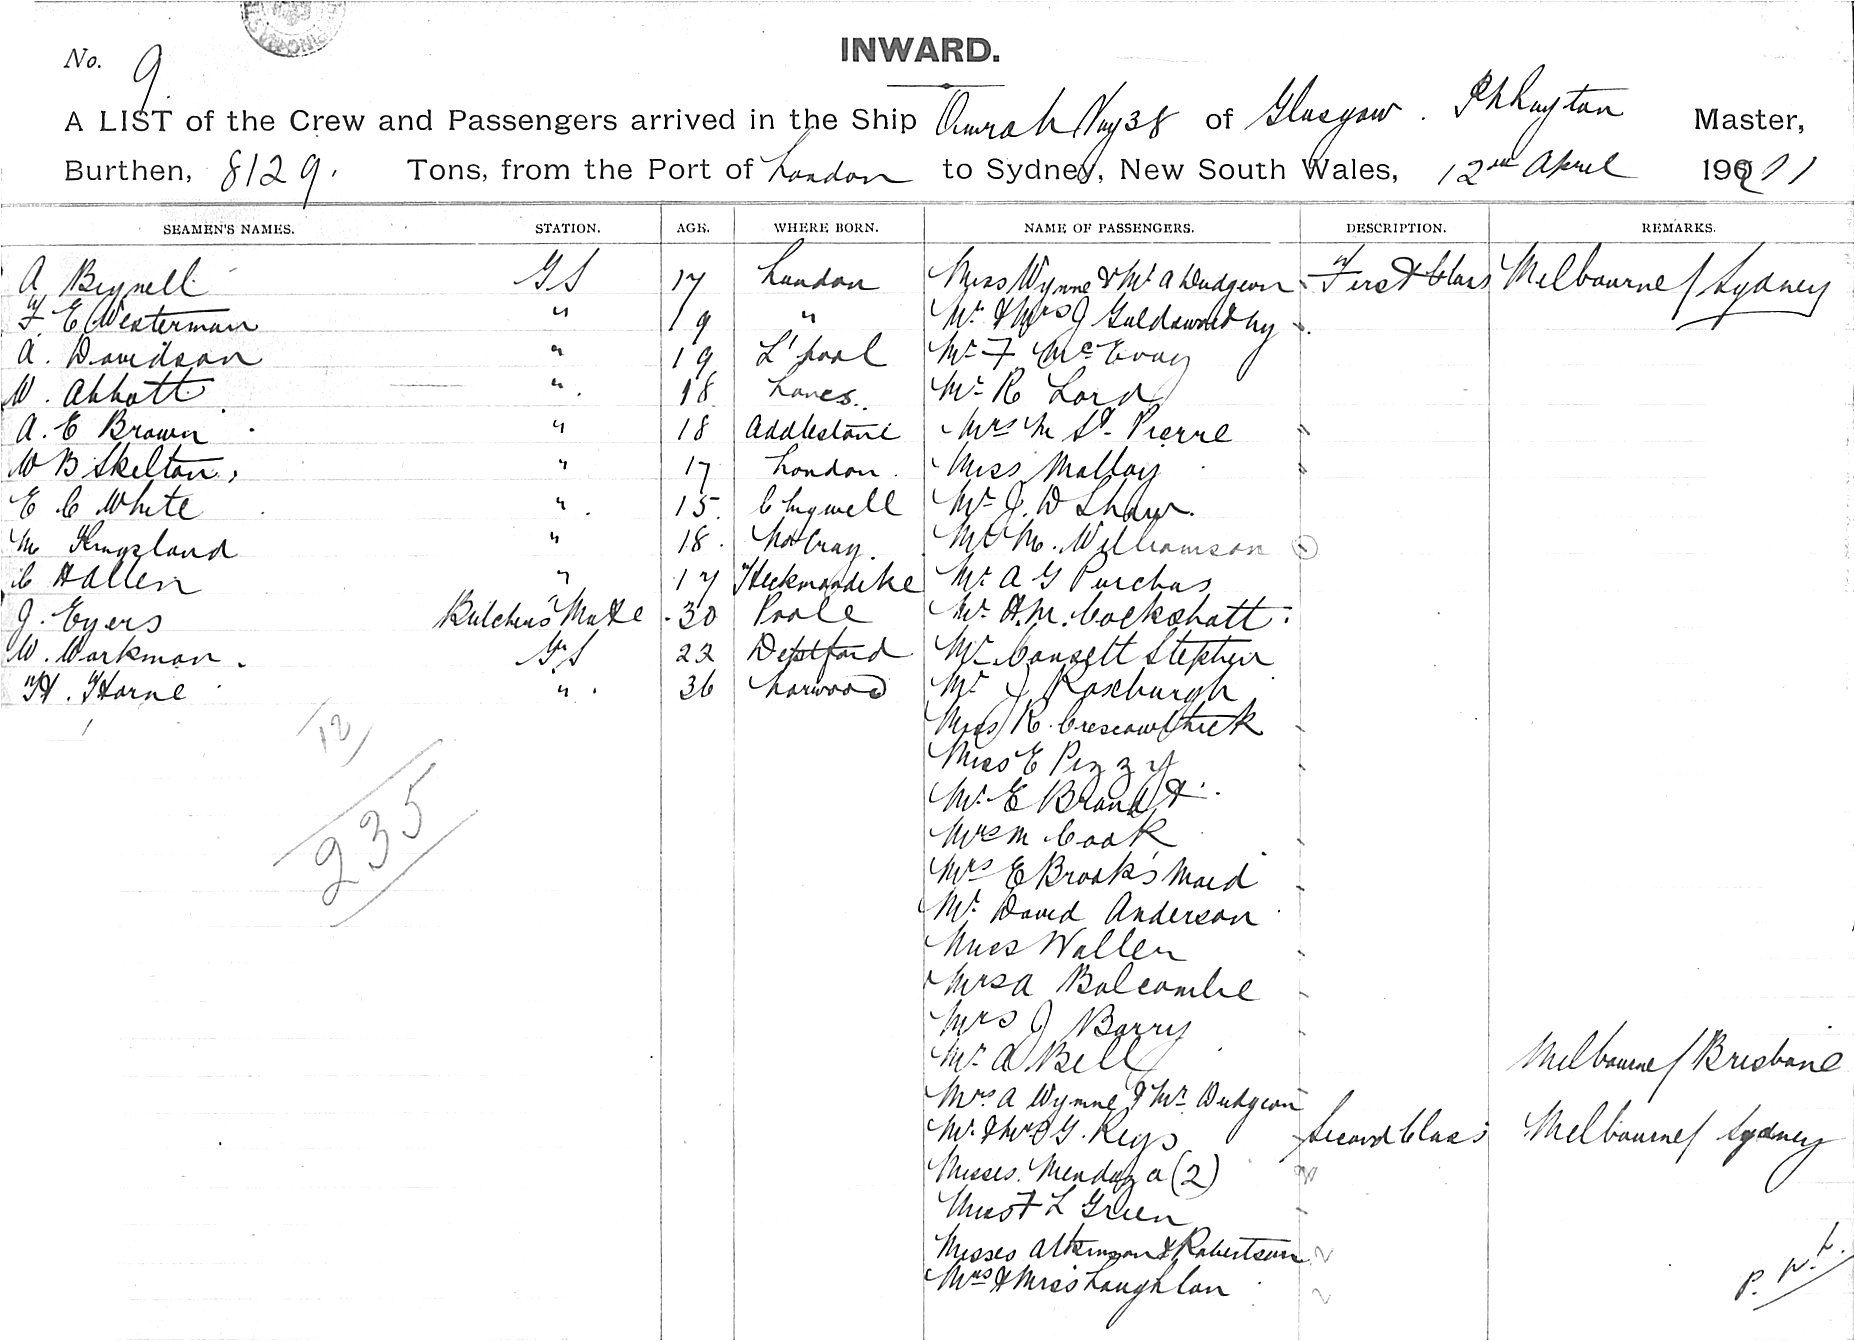 INWARD.
No. 9
A LIST of the Crew and Passengers arrived in the Ship Omrah Voy 38 of Glasgow. Master,
Burthen, 8129. Tons, from the Port of London to Sydney, New South Wales, 12th April 1911
SEAMEN'S NAMES. STATION. AGE. WHERE BORN. NAME OF PASSENGERS. DESCRIPTION. REMARKS.
A GS 17 London Miss Wynne & Mr A Dudgeon First Class Melbourne / Sydney
F. E Westerman " 19 " Mr & Mrs J Goldsworthy
A. Davidson " 19 L'pool Mr F McEvoy
W. Abbott " 18 Mr R Lord
A. E Brown " 18 Addlestone Mrs M St. Pierre
W B Skelton " 17 London. Miss Malloy
E C White " 15 Chigwell Mr J. D Shaw.
M Kingsland " 18. Mr M. Williamson
C Hallen " 17 Heckmondike Mr A G Purchas
J. Eyers Butchers Mate 30 Poole Mr H. M. Cockshott.
W. Workman. GS 22 Deptford Mr Consett Stephen
H. Horne " 36 Norwood Mr J Roxburgh
12 Miss R.
Miss E Pizzy
235 Mr E Brandt
Mrs M Cook
Mrs E Brook's Maid
Mr David Anderson
Miss Wallen
Mrs A Balcombe
Mrs J Barry
Mr A Bell Melbourne / Brisbane
Mrs A Wynne & Mr Dudgeon
Mr & Mrs G. Keys Second Class Melbourne / Sydney
Misses. Mendoza (2) 2
Miss F L Green
Misses Atkinson & Robertson 2
Mrs & Miss Loughlan 2